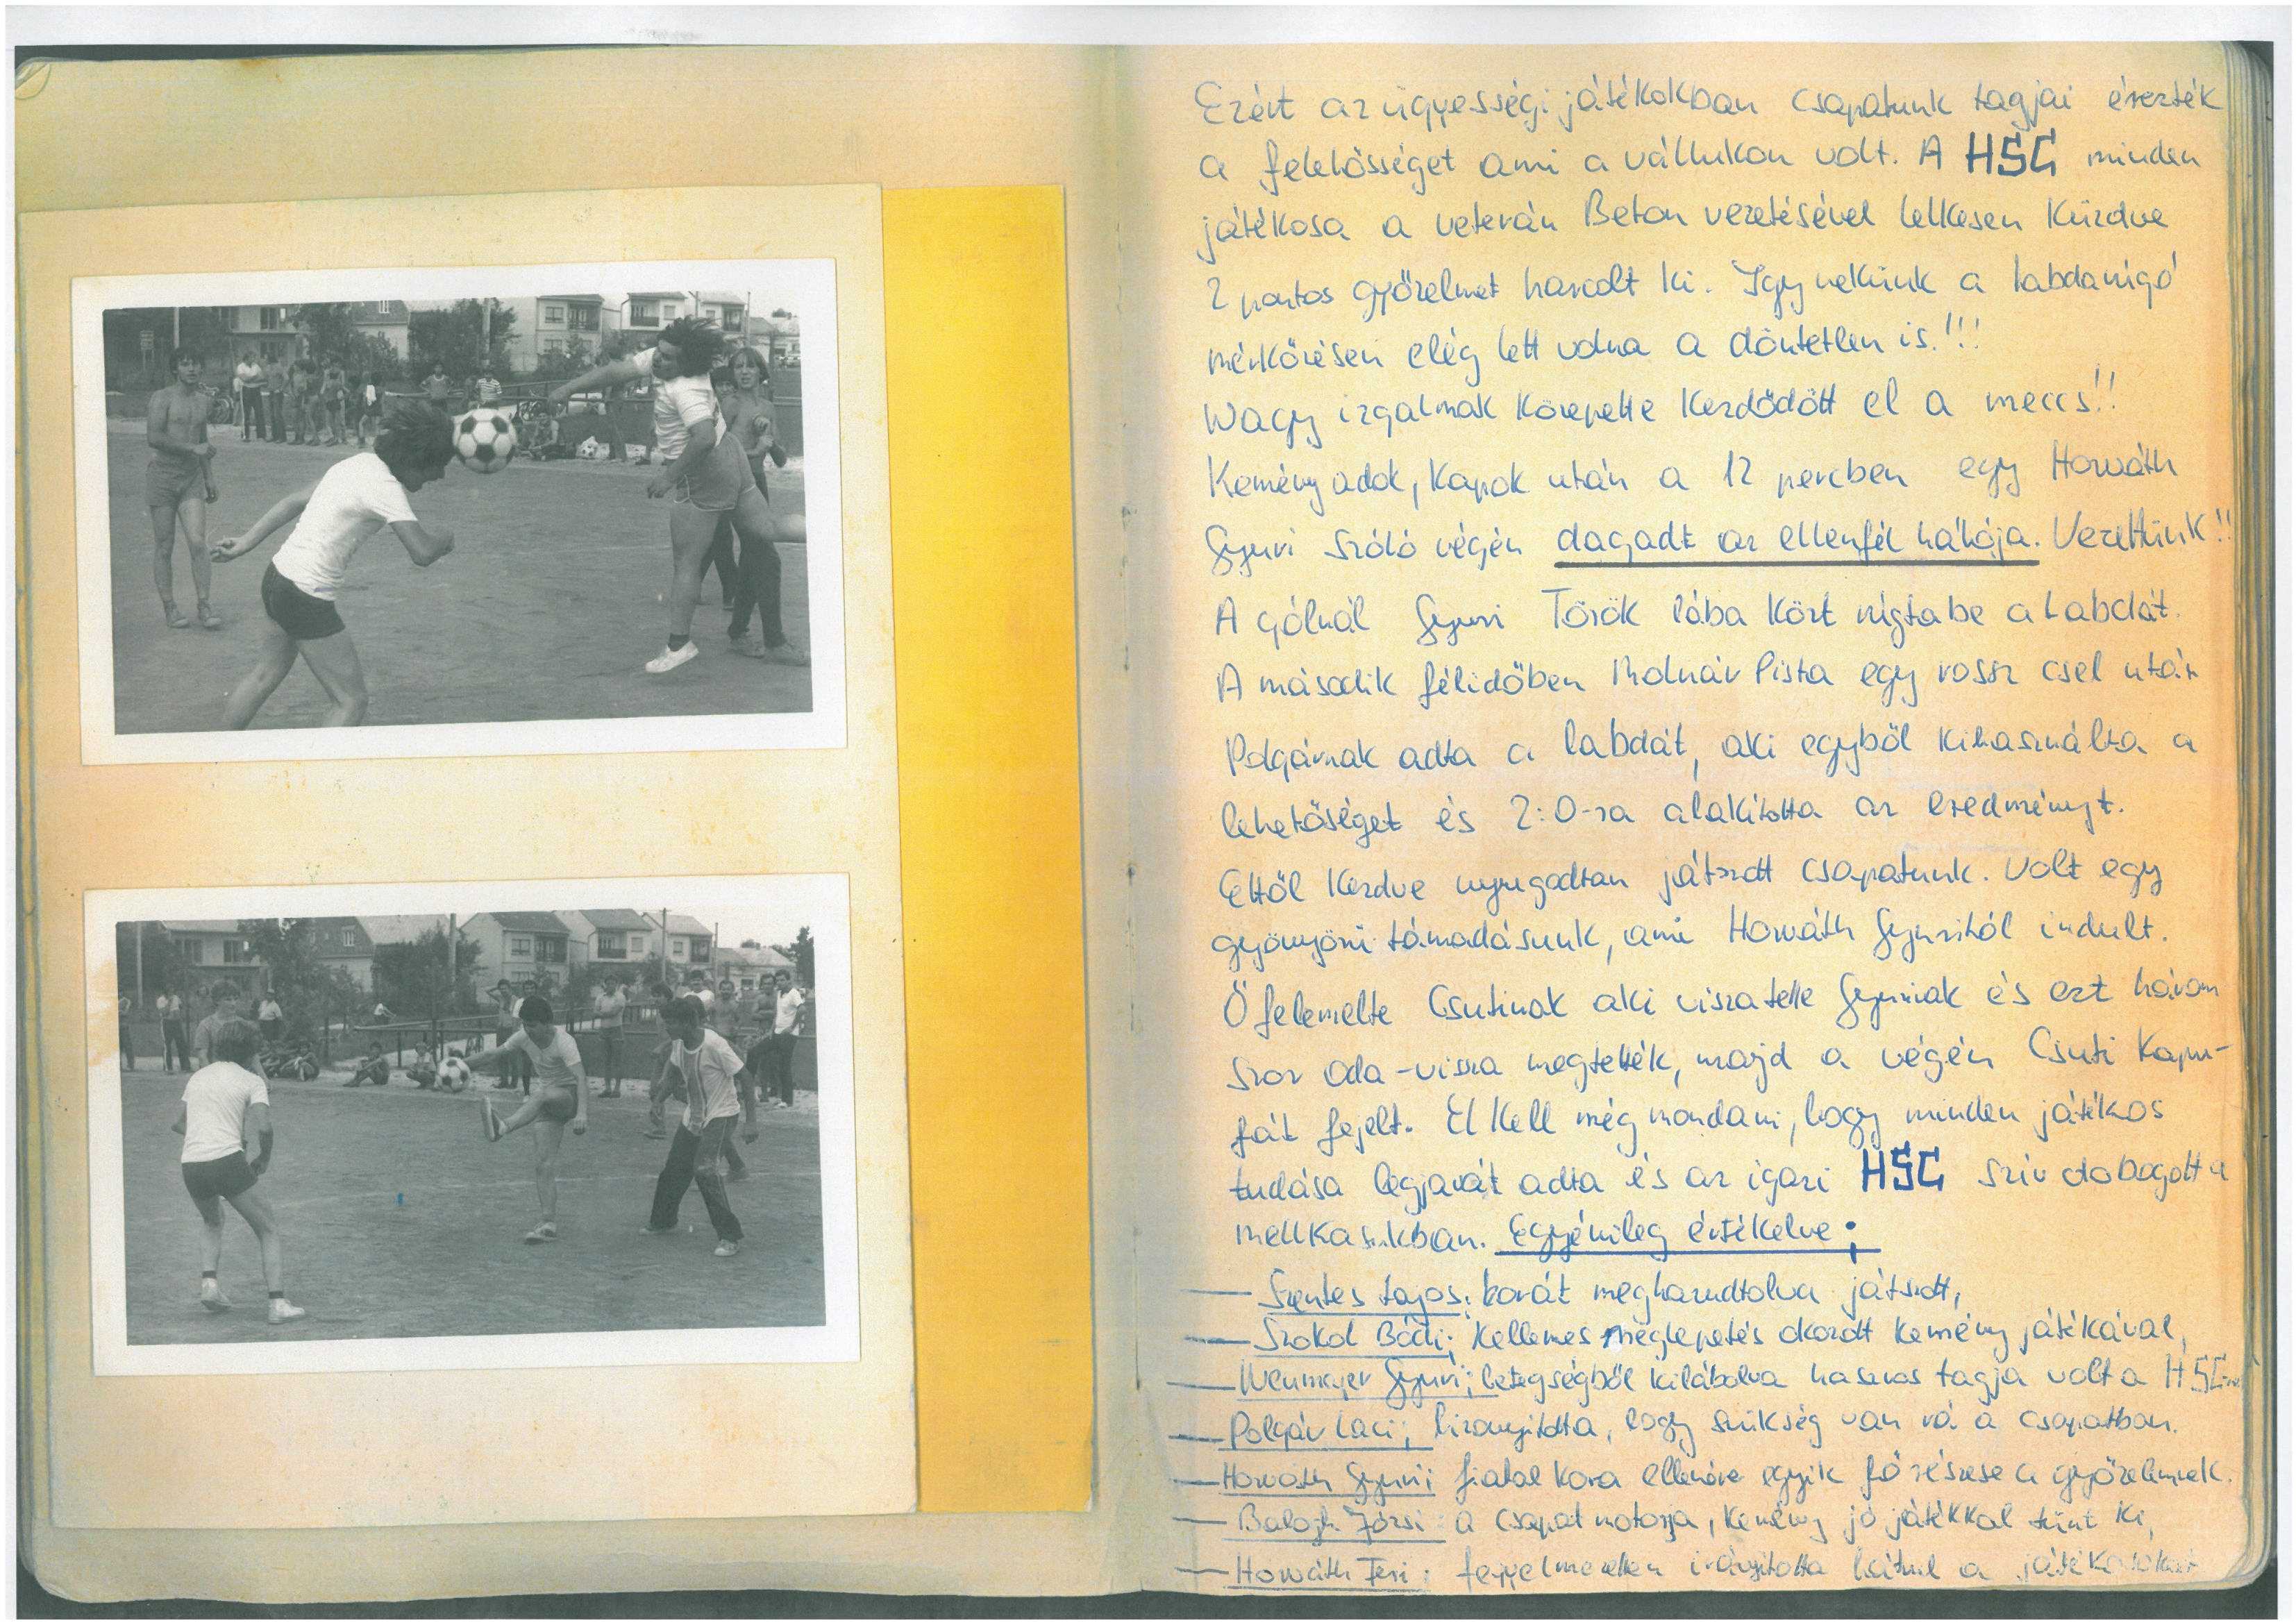 Ezért az ügyességi játékokban csapatunk tagjai érezték
a felelősséget ami a vállukon volt. A HSC minden
játékosa a veterán Beton vezetésével lelkesen küzdve
2 pontos győzelmet harcolt ki. Igy nekünk a labdarúgó
mérkőzésen elég lett volna a döntetlen is.!!!
Nagy izgalmak közepette kezdődött el a meccs!!
Kemény adok, kapok után a 12 percben egy Horváth
Gyuri szóló végén dagadt az ellenfél hálója. Vezettünk!!
A gólnál Gyuri Török lába közt rúgta be a labdát.
A második félidőben Molnár Pista egy rossz csel után
Polgárnak adta a labdát, aki egyből kihasználta a
lehetőséget és 2:0-ra alakította az eredményt.
Ettől kezdve nyugodtan játszott csapatunk. Volt egy
gyönyörű támadásunk, ami Horváth Gyuritól indult.
Ő felemelte Csutinak aki viszatette Gyurinak és ezt három
szor oda-vissza megtették, majd a végén Csuti kapu-
fát fejelt. El kell még mondani, hogy minden játékos
tudása legjavát adta és az igazi HSC szív dobogott a
mellkasukban. Egyénileg értékelve:
— Szentes Lajos: korát meghazudtolva játszott,
— Szokol Bódi; kellemes meglepetés okozott kemény játékával,
— Gyuri; betegségből kilábolva hasznos tagja volt a HSC-nek
— Polgár Laci; bizonyította, hogy szükség van rá a csapatban.
— Horváth Gyuri; fiatal kora ellenére egyik fő részese a győzelemnek.
— Balogh Józsi: a csapat motorja, kemény jó játékkal tünt ki,
— Horváth Feri: fegyelmezetten irányította hátul a